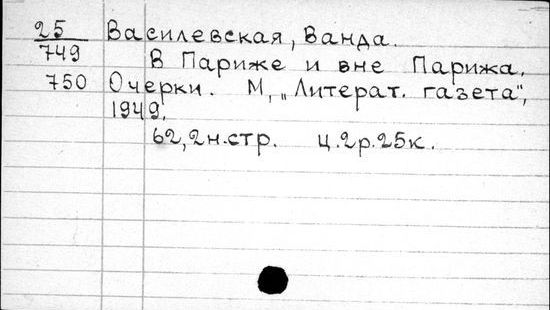 25 Василевская, Ванда.
749 В Париже и вне Парижа.
750 Очерки. М, „Литерат. газета“,
1949.
62, 2н.стр. ц.2р.25к.